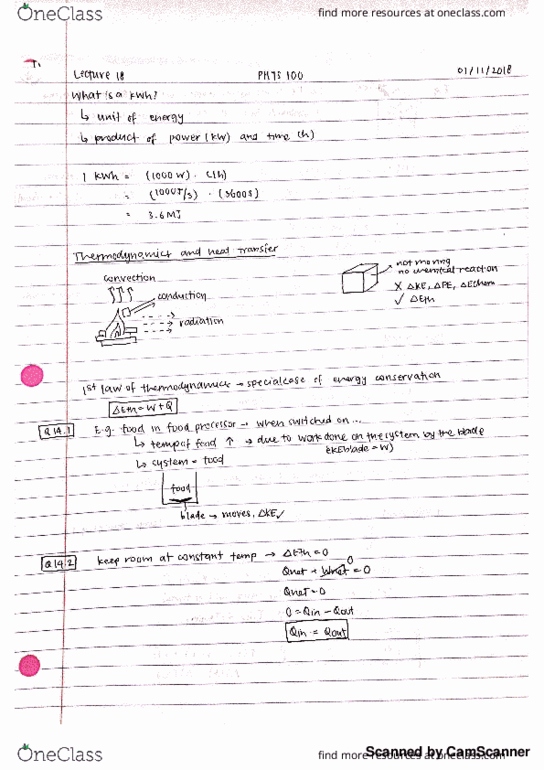 OneClass
find more resources at oneclass.com
T.
Lecture 18 PHYS 100 01/11/2018
What is a kWh?
↳ unit of energy
↳ product of power (kW) and time (h)
1 kWh = (1000 W) · (1h)
= (1000 J/s) · (3600s)
= 3.6MJ
Thermodynamics and heat transfer
convection
conduction
radiation
not moving
no chemical reaction
X ΔKE, ΔPE, ΔEchem
✓ ΔEth
1st law of thermodynamics → special case of energy conservation
ΔEth = W + Q
Q14.1 E.g. food in food processor → when switched on ...
↳ temp of food ↑ → due to work done on the system by the blade
(KEblade = W)
↳ system = food
food
blade → moves, ΔKE✓
Q14.2 keep room at constant temp → ΔEth = 0
Qnet + Wnet = 0
0
Qnet = 0
0 = Qin − Qout
Qin = Qout
OneClass
find more resources at oneclass.com
Scanned by CamScanner